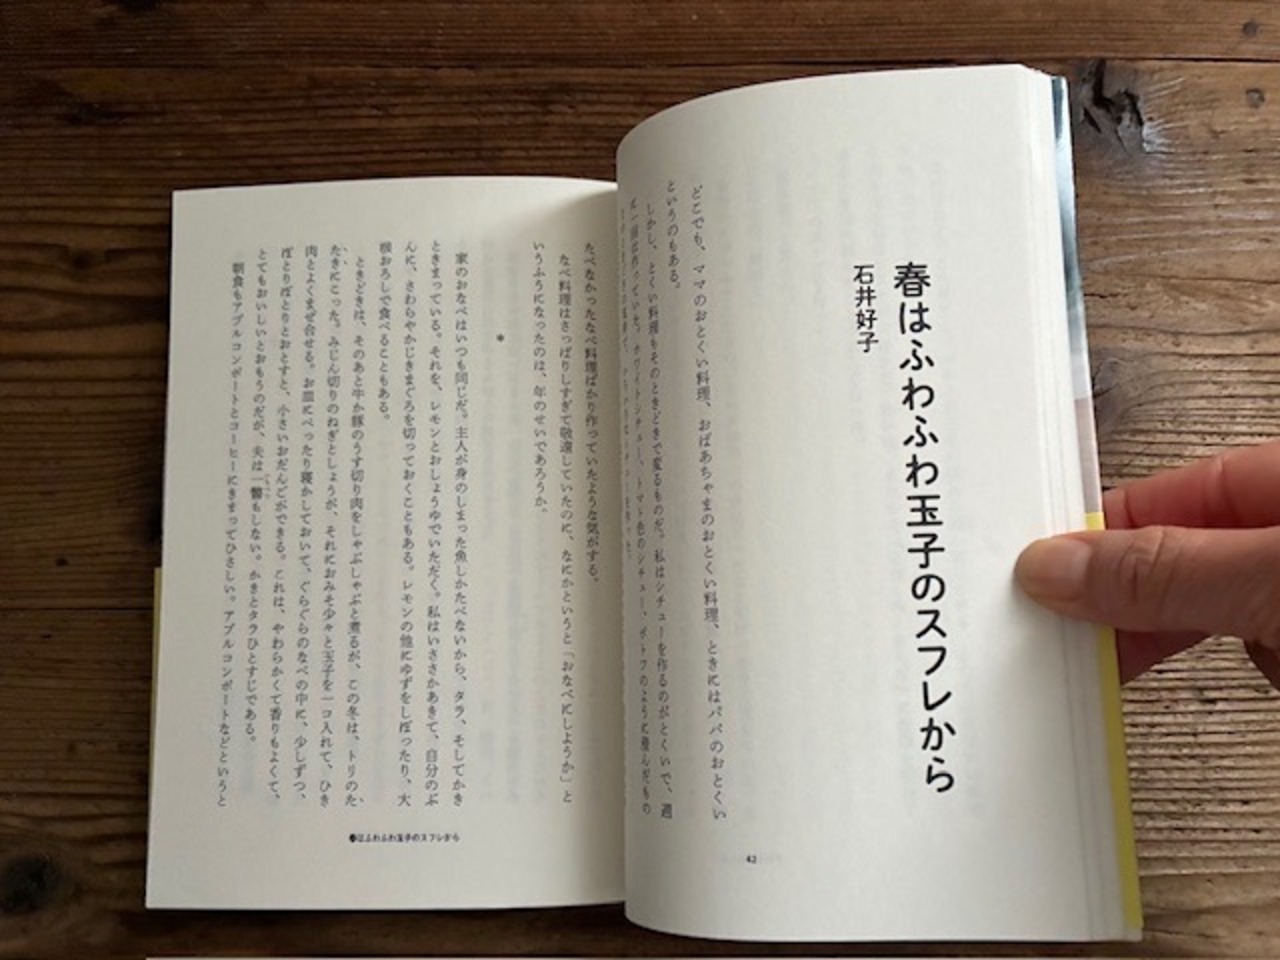 春はふわふわ玉子のスフレから
石井好子
どこでも、ママのおとくい料理、おばあちゃまのおとくい料理、ときにはパパのおとくい
というのもある。
しかし、とくい料理もそのときどきで変るものだ。私はシチューを作るのがとくいで、週
に一回は作っていた。ホワイトシチュー、トマト色のシチュー、ポトフのように澄んだもの
42
たべなかったなべ料理ばかり作っていたような気がする。
なべ料理はさっぱりしすぎて敬遠していたのに、なにかというと「おなべにしようか」と
いうふうになったのは、年のせいであろうか。
*
家のおなべはいつも同じだ。主人が身のしまった魚しかたべないから、タラ、そしてかき
ときまっている。それを、レモンとおしょうゆでいただく。私はいささかあきて、自分のぶ
んに、さわらやかじきまぐろを切っておくこともある。レモンの他にゆずをしぼったり、大
根おろしで食べることもある。
ときどきは、そのあと牛か豚のうす切り肉をしゃぶしゃぶと煮るが、この冬は、トリのた
たきにこった。みじん切りのねぎとしょうが、それにおみそ少々と玉子を一コ入れて、ひき
肉とよくまぜ合せる。お皿にぺったり寝かしておいて、ぐらぐらのなべの中に、少しずつ、
ぽとりぽとりとおとすと、小さいおだんごができる。これは、やわらかくて香りもよくて、
とてもおいしいとおもうのだが、夫は一顧もしない。かきとタラひとすじである。
朝食もアプルコンポートとコーヒーにきまってひさしい。アプルコンポートなどというと
●春はふわふわ玉子のスフレから